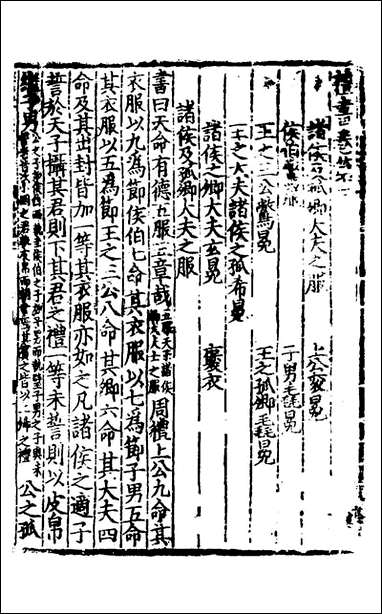 禮書卷第二
諸侯及孤卿大夫之服　上公袞冕
侯伯鷩冕　子男毳冕
王之三公鷩冕　王之孤卿毳冕
王之大夫諸侯之孤希冕
諸侯之卿大夫玄冕　褒衣
諸侯及孤卿大夫之服
書曰天命有德五服三章哉五服天子諸侯卿大夫士之服周禮上公九命其
衣服以九為節侯伯七命其衣服以七為節子男五命
其衣服以五為節王之三公八命其卿六命其大夫四
命及其出封皆加一等其衣服亦如之凡諸侯之適子
誓於天子攝其君則下其君之禮一等未誓則以皮帛
繼子男公之孤